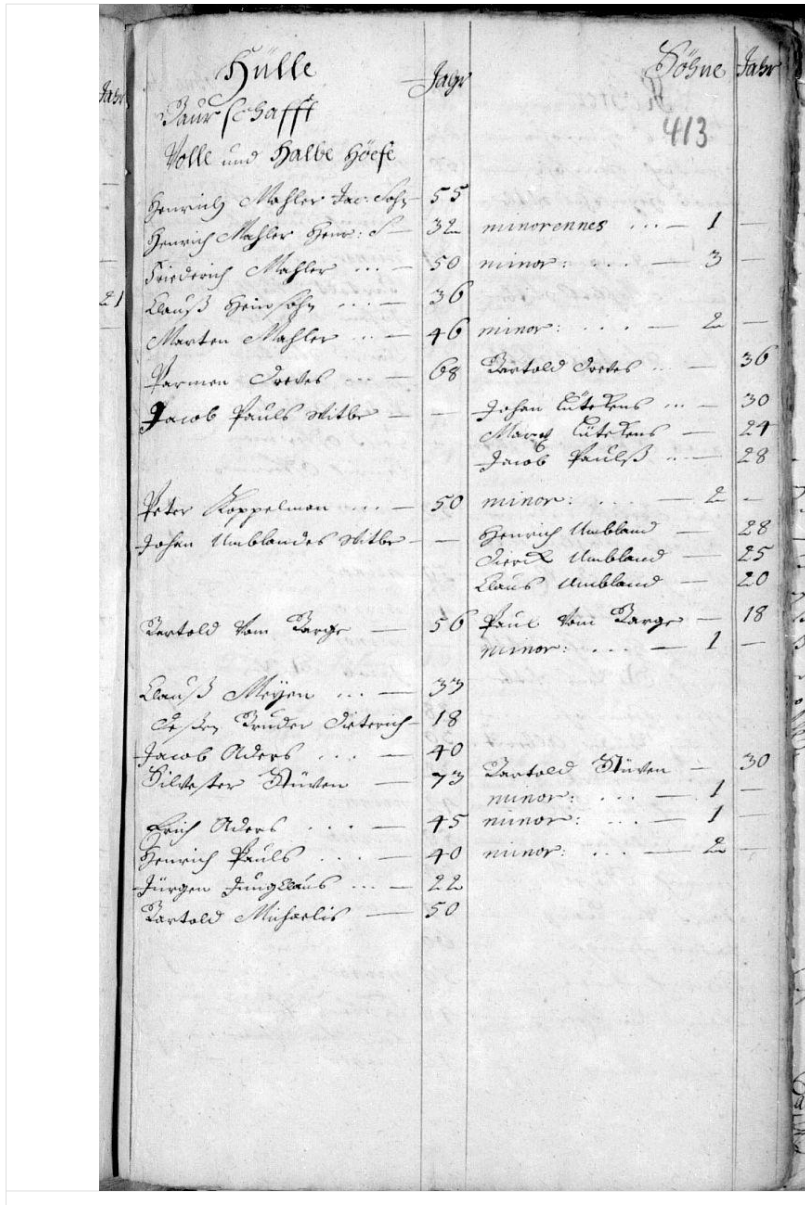 Jahr
Hülle
Jahr
Söhne Jahr
Baurschafft
413
Volle und Halbe Höefe
Henrich Mahler Jac: Sohn 55
Henrich Mahler Henr: S — 32 minorennes ... — 1 —
Friederich Mahler ... — 50 minor: — 3 —
21
Clauß Heinsohn ... — 36
Marten Mahler ... — 46 minor: .... — 2 —
Parmen Dreves ... — 68 Bartold Dreves ... — 36
Jacob Pauls Witbe — — Johan Lütekens ... — 30
Lütekens — 24
Jacob Paulß ... — 28
Peter Koppelman .... — 50 minor: .... — 2 —
Johan Umblandes Witbe — — Henrich Umbland — 28
Dierck Umbland — 25
Claus Umbland — 20
Bartold Vom Barge — 56 Paul Vom Barge — 18
minor: .... — 1 —
Clauß Meyen ... — 33
Deßen Bruder Dieterich — 18
Jacob Aders ... — 40
Silvester Stüven — 73 Bartold Stüven — 30
minor: ... — 1 —
Erich Aders .... — 45 minor: ... — 1 —
Henrich Pauls .... — 40 minor: ... — 2 —
Jürgen Jungclaus ... — 22
Bartold Michaelis — 50